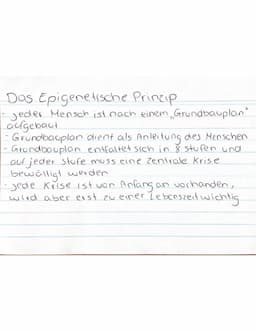 Das Epigenetische Prinzip
- jeder Mensch ist nach einem „Grundbauplan"
aufgebaut
- Grundbauplan dient als Anleitung des Menschen
- Grundbauplan entfaltet sich in 8 Stufen und
auf jeder Stufe muss eine zentrale Krise
bewältigt werden
- jede Krise ist von Anfang an vorhanden,
wird aber erst zu einer Lebenszeit wichtig